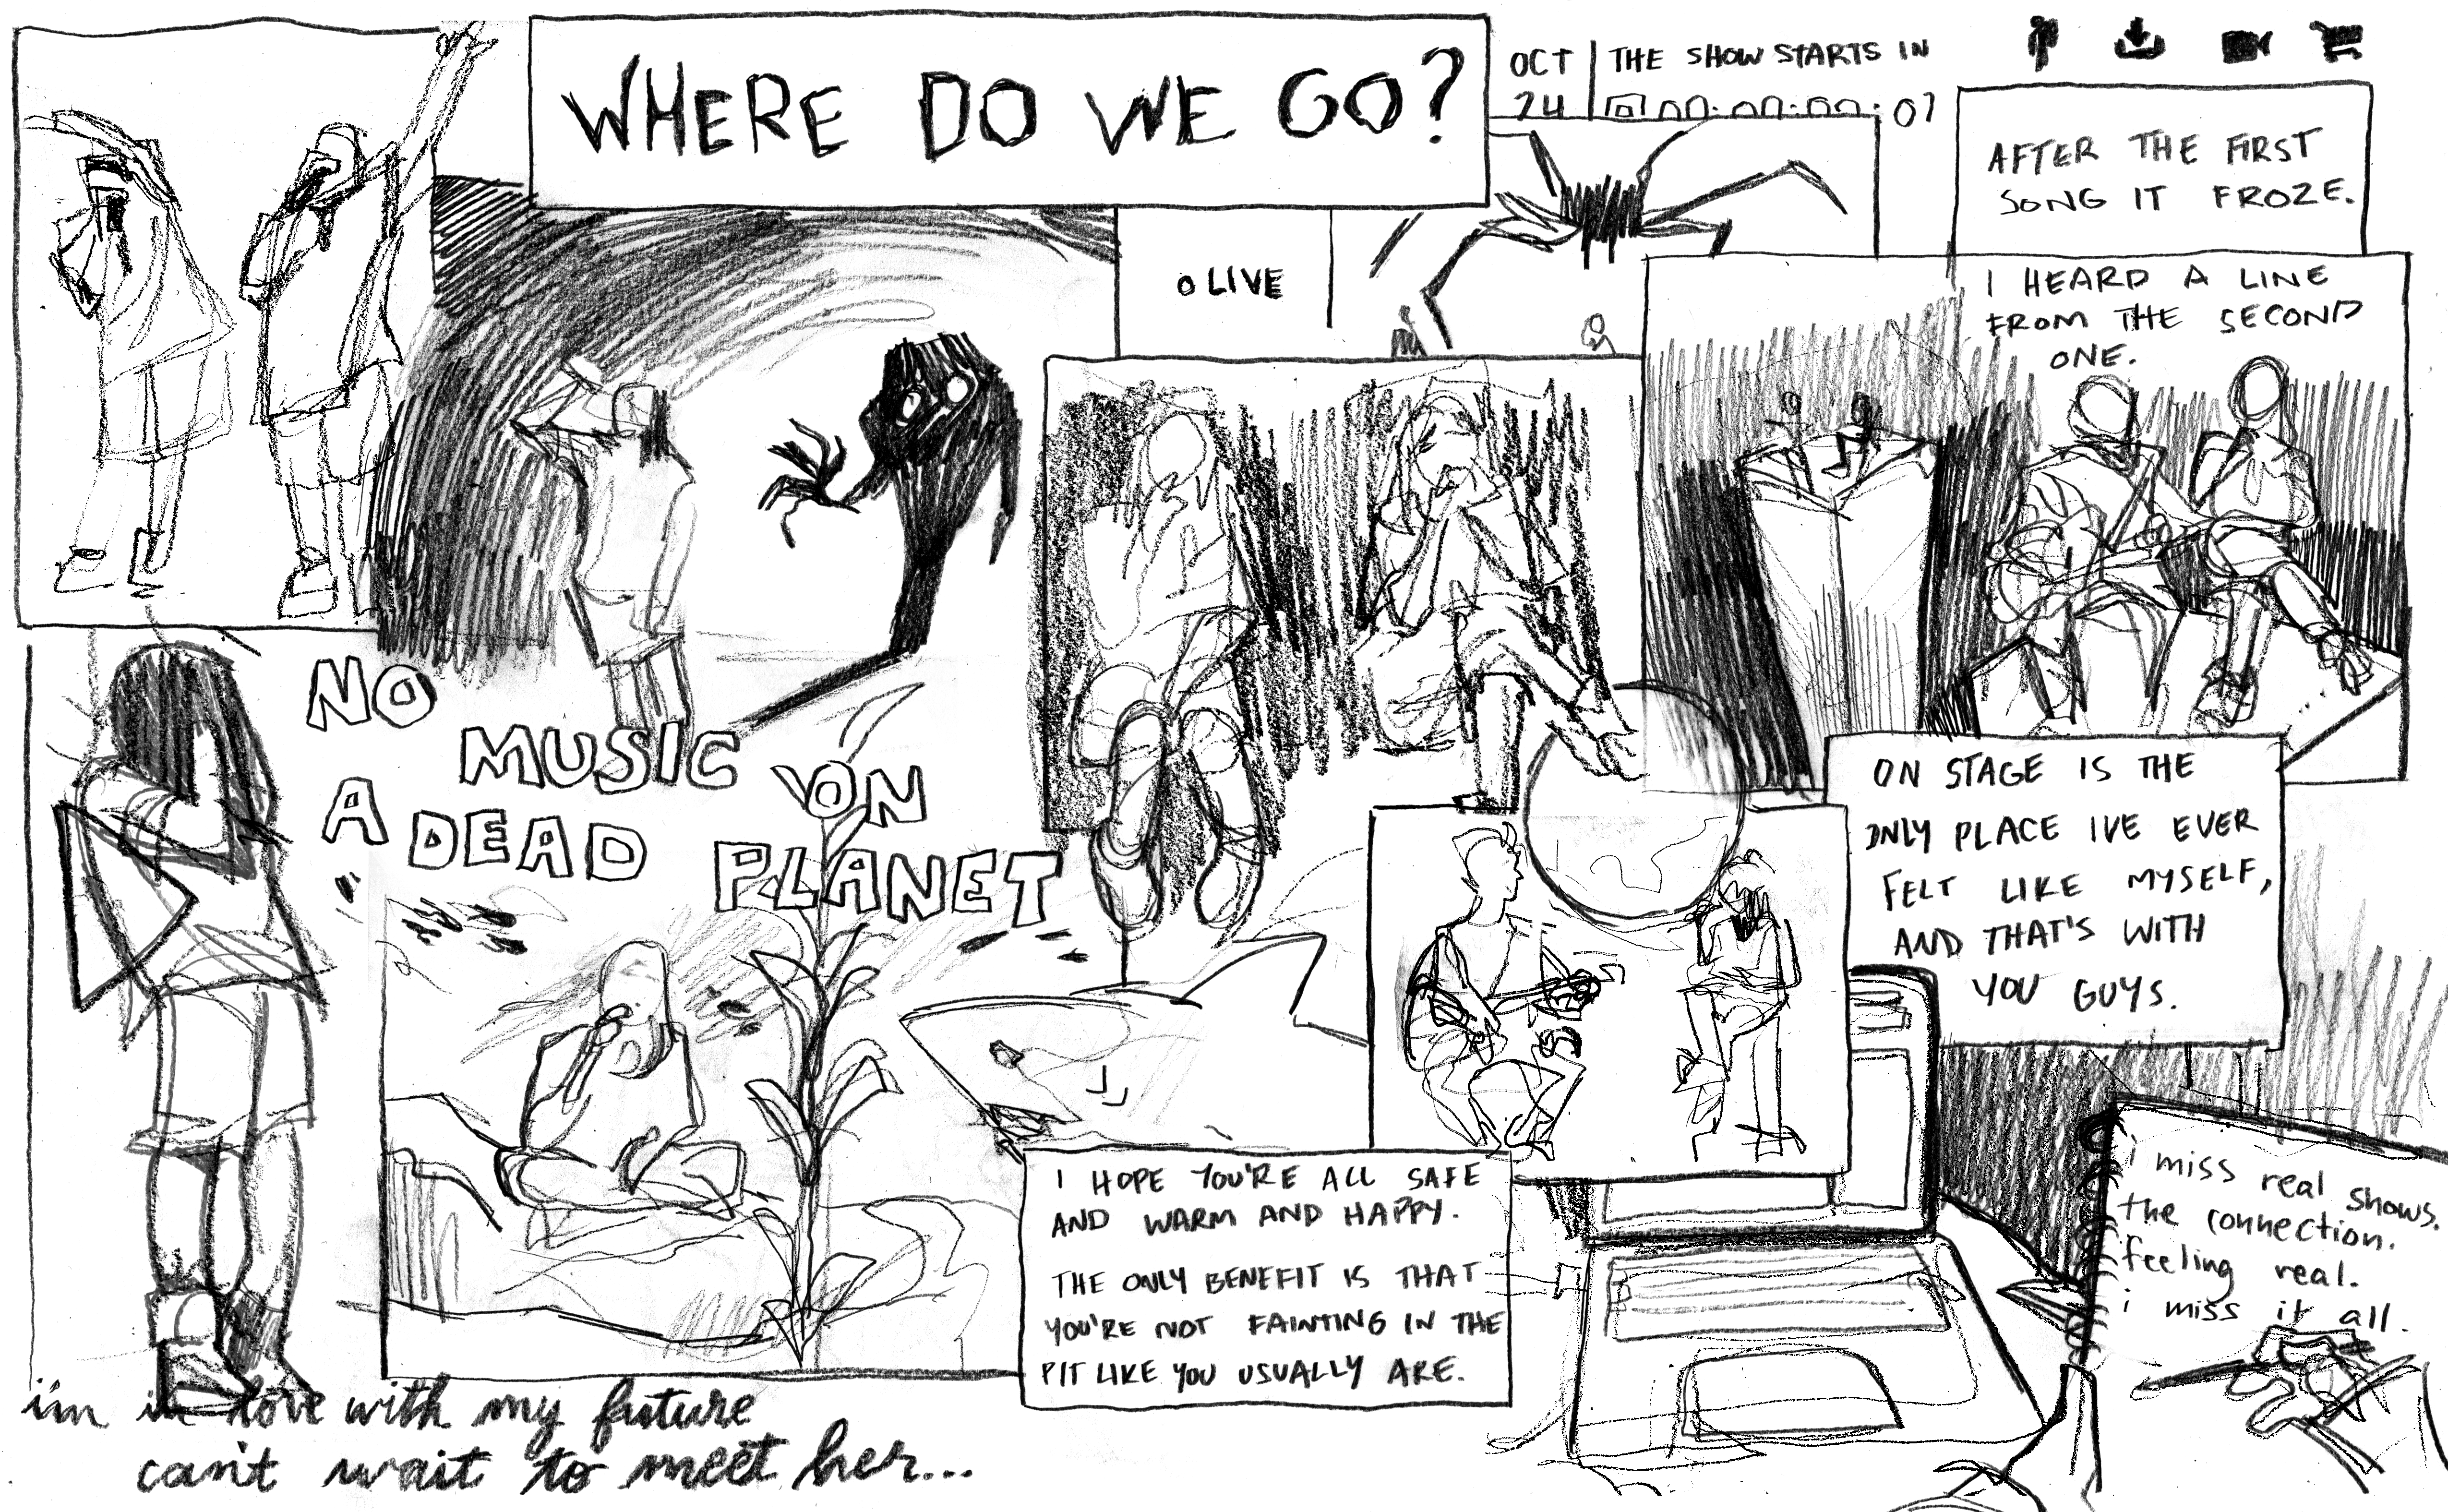 WHERE DO WE GO?
OCT
24
THE SHOW STARTS IN
00:00:00:07
AFTER THE FIRST
SONG IT FROZE.
LIVE
I HEARD A LINE
FROM THE SECOND
ONE.
NO
MUSIC ON
A DEAD PLANET
ON STAGE IS THE
ONLY PLACE IVE EVER
FELT LIKE MYSELF,
AND THAT'S WITH
YOU GUYS.
I HOPE YOU'RE ALL SAFE
AND WARM AND HAPPY.
THE ONLY BENEFIT IS THAT
YOU'RE NOT FAINTING IN THE
PIT LIKE YOU USUALLY ARE.
i miss real shows.
the connection.
feeling real.
i miss it all.
i'm in love with my future
can't wait to meet her...